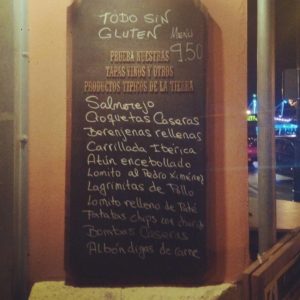 TODO SIN
GLUTEN MENU
9,50
PRUEBA NUESTRAS
TAPAS VINOS Y OTROS
PRODUCTOS TIPICOS DE LA TIERRA
Salmorejo
Croquetas Caseras
Berenjenas rellenas
Carrillada Ibérica
Atún encebollado
Lomito al Pedro Ximénez
Lagrimitas de Pollo
Lomito relleno de Paté
Patatas chips con
Bombas Caseras
Albóndigas de carne